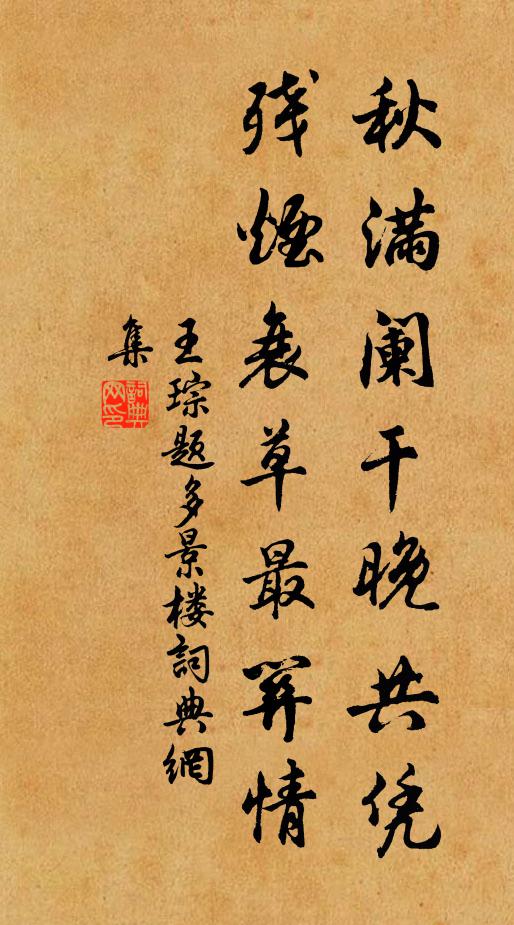 秋满阑干晚共凭
残烟衰草最关情
王琮题多景楼詞典網
集
詞典网印